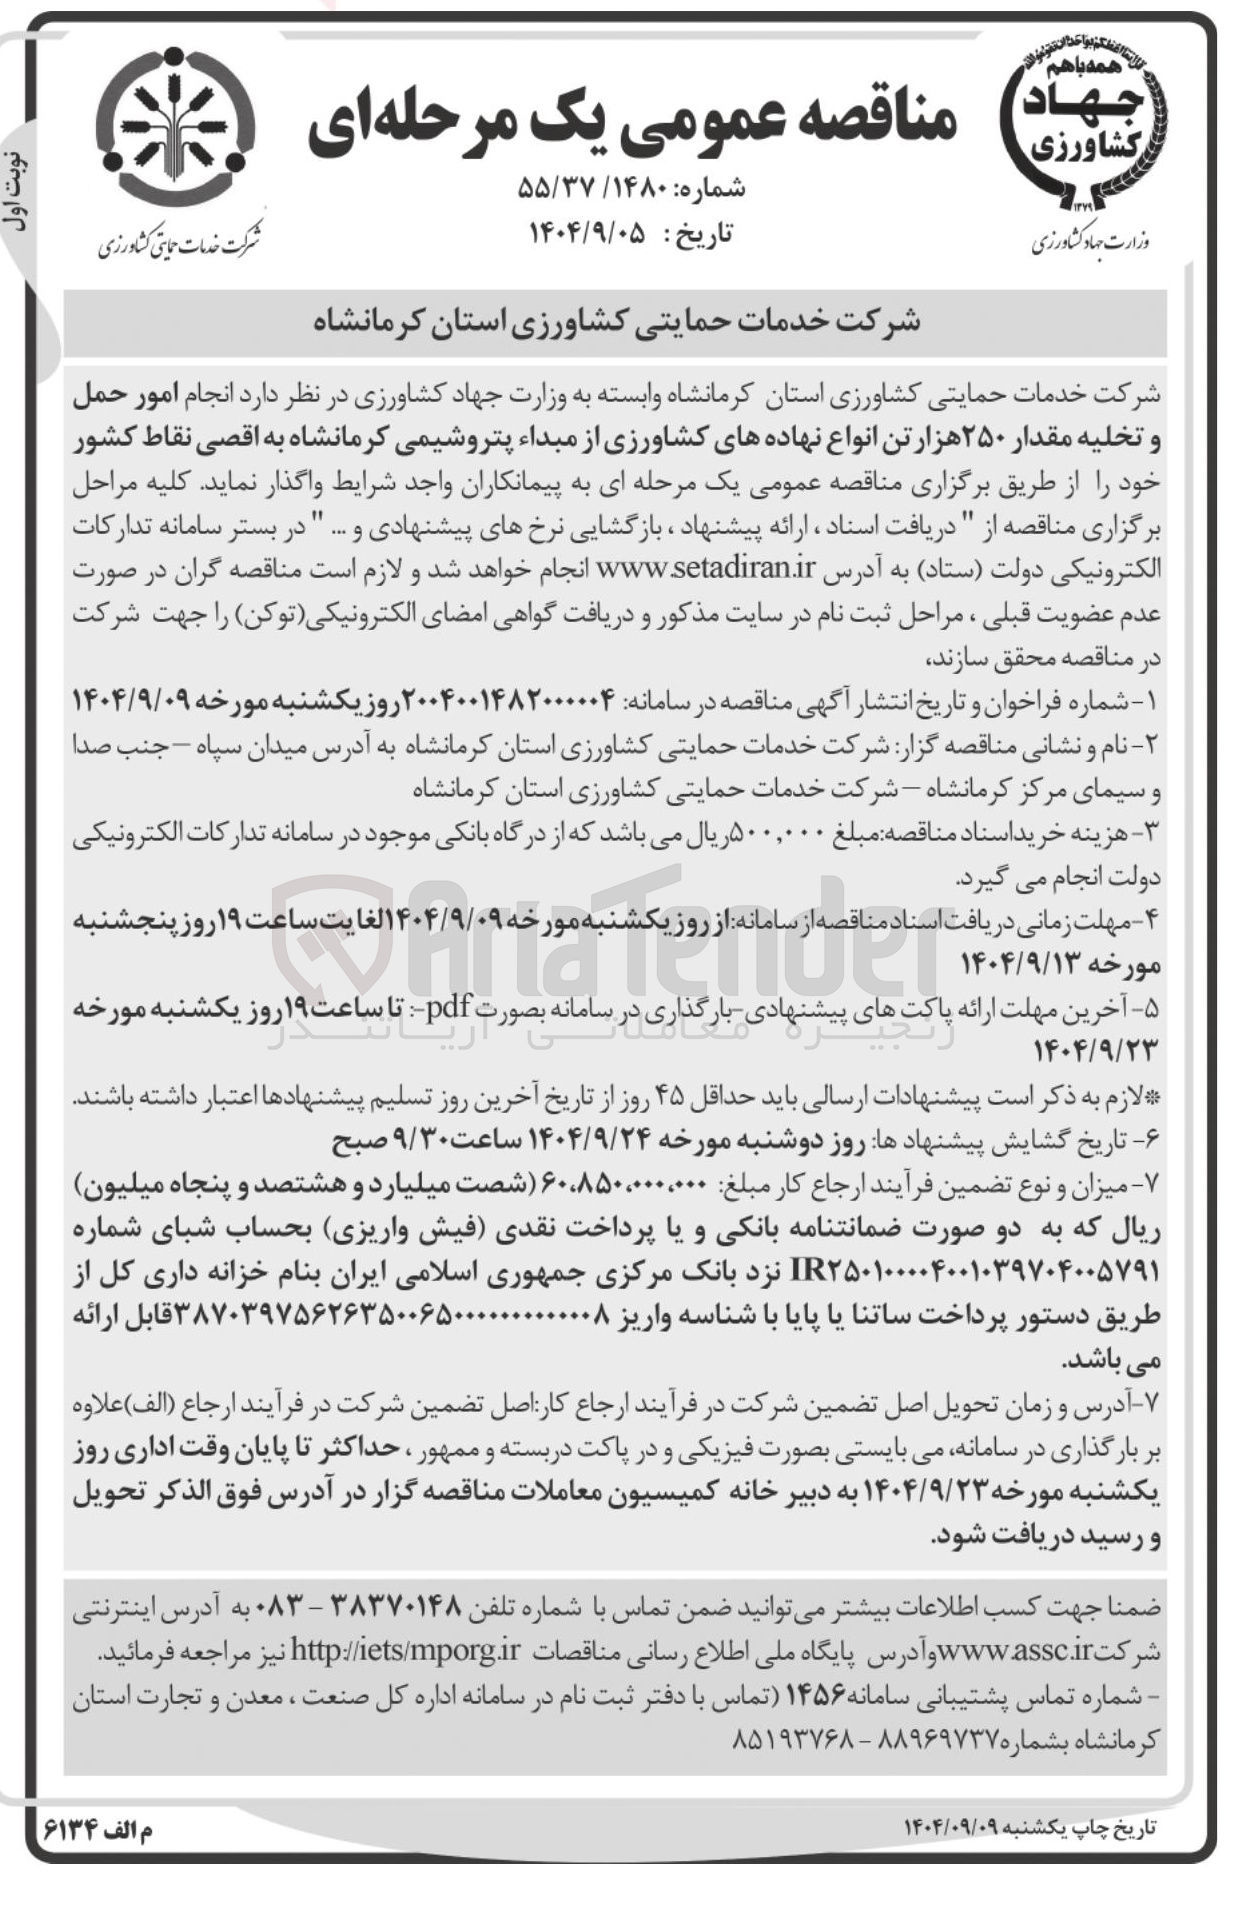 نوبت اول
همه با هم
جهاد
کشاورزی
۱۳۷۹
وزارت جهاد کشاورزی
مناقصه عمومی یک مرحله‌ای
شماره: ۱۴۸۰/ ۵۵/۳۷
تاریخ : ۱۴۰۴/۹/۰۵
شرکت خدمات حمایتی کشاورزی
شرکت خدمات حمایتی کشاورزی استان کرمانشاه
شرکت خدمات حمایتی کشاورزی استان کرمانشاه وابسته به وزارت جهاد کشاورزی در نظر دارد انجام امور حمل
و تخلیه مقدار ۲۵۰هزار تن انواع نهاده های کشاورزی از مبداء پتروشیمی کرمانشاه به اقصی نقاط کشور
خود را از طریق برگزاری مناقصه عمومی یک مرحله ای به پیمانکاران واجد شرایط واگذار نماید. کلیه مراحل
برگزاری مناقصه از " دریافت اسناد ، ارائه پیشنهاد ، بازگشایی نرخ های پیشنهادی و ... " در بستر سامانه تدارکات
الکترونیکی دولت (ستاد) به آدرس www.setadiran.ir انجام خواهد شد و لازم است مناقصه گران در صورت
عدم عضویت قبلی ، مراحل ثبت نام در سایت مذکور و دریافت گواهی امضای الکترونیکی(توکن) را جهت شرکت
در مناقصه محقق سازند،
۱- شماره فراخوان و تاریخ انتشار آگهی مناقصه در سامانه: ۲۰۰۴۰۰۱۴۸۲۰۰۰۰۰۴روز یکشنبه مورخه ۱۴۰۴/۹/۰۹
۲- نام و نشانی مناقصه گزار: شرکت خدمات حمایتی کشاورزی استان کرمانشاه به آدرس میدان سپاه –جنب صدا
و سیمای مرکز کرمانشاه – شرکت خدمات حمایتی کشاورزی استان کرمانشاه
۳- هزینه خریداسناد مناقصه:مبلغ ۵۰۰,۰۰۰ریال می باشد که از درگاه بانکی موجود در سامانه تدارکات الکترونیکی
دولت انجام می گیرد.
۴-مهلت زمانی دریافت اسناد مناقصه از سامانه:از روز یکشنبه مورخه ۱۴۰۴/۹/۰۹لغایت ساعت ۱۹ روز پنجشنبه
مورخه ۱۴۰۴/۹/۱۳
۵- آخرین مهلت ارائه پاکت های پیشنهادی-بارگذاری در سامانه بصورت pdf-: تا ساعت۱۹روز یکشنبه مورخه
۱۴۰۴/۹/۲۳
*لازم به ذکر است پیشنهادات ارسالی باید حداقل ۴۵ روز از تاریخ آخرین روز تسلیم پیشنهادها اعتبار داشته باشند.
۶- تاریخ گشایش پیشنهاد ها: روز دوشنبه مورخه ۱۴۰۴/۹/۲۴ ساعت۹/۳۰ صبح
۷- میزان و نوع تضمین فرآیند ارجاع کار مبلغ: ۶۰،۸۵۰،۰۰۰،۰۰۰ (شصت میلیارد و هشتصد و پنجاه میلیون)
ریال که به دو صورت ضمانتنامه بانکی و یا پرداخت نقدی (فیش واریزی) بحساب شبای شماره
IR۲۵۰۱۰۰۰۰۴۰۰۱۰۳۹۷۰۴۰۰۵۷۹۱ نزد بانک مرکزی جمهوری اسلامی ایران بنام خزانه داری کل از
طریق دستور پرداخت ساتنا یا پایا با شناسه واریز ۳۸۷۰۳۹۷۵۶۲۶۳۵۰۰۶۵۰۰۰۰۰۰۰۰۰۰۰۰۸قابل ارائه
می باشد.
۷-آدرس و زمان تحویل اصل تضمین شرکت در فرآیند ارجاع کار:اصل تضمین شرکت در فرآیند ارجاع (الف)علاوه
بر بارگذاری در سامانه، می بایستی بصورت فیزیکی و در پاکت دربسته و ممهور ، حداکثر تا پایان وقت اداری روز
یکشنبه مورخه۱۴۰۴/۹/۲۳ به دبیر خانه کمیسیون معاملات مناقصه گزار در آدرس فوق الذکر تحویل
و رسید دریافت شود.
ضمنا جهت کسب اطلاعات بیشتر می‌توانید ضمن تماس با شماره تلفن ۳۸۳۷۰۱۴۸ – ۰۸۳ به آدرس اینترنتی
شرکتwww.assc.irوآدرس پایگاه ملی اطلاع رسانی مناقصات http://iets/mporg.ir نیز مراجعه فرمائید.
- شماره تماس پشتیبانی سامانه۱۴۵۶ (تماس با دفتر ثبت نام در سامانه اداره کل صنعت ، معدن و تجارت استان
کرمانشاه بشماره۸۸۹۶۹۷۳۷ – ۸۵۱۹۳۷۶۸
تاریخ چاپ یکشنبه ۱۴۰۴/۰۹/۰۹
م الف ۶۱۳۴
AriaTender
زنجیره معاملاتی آریاتندر